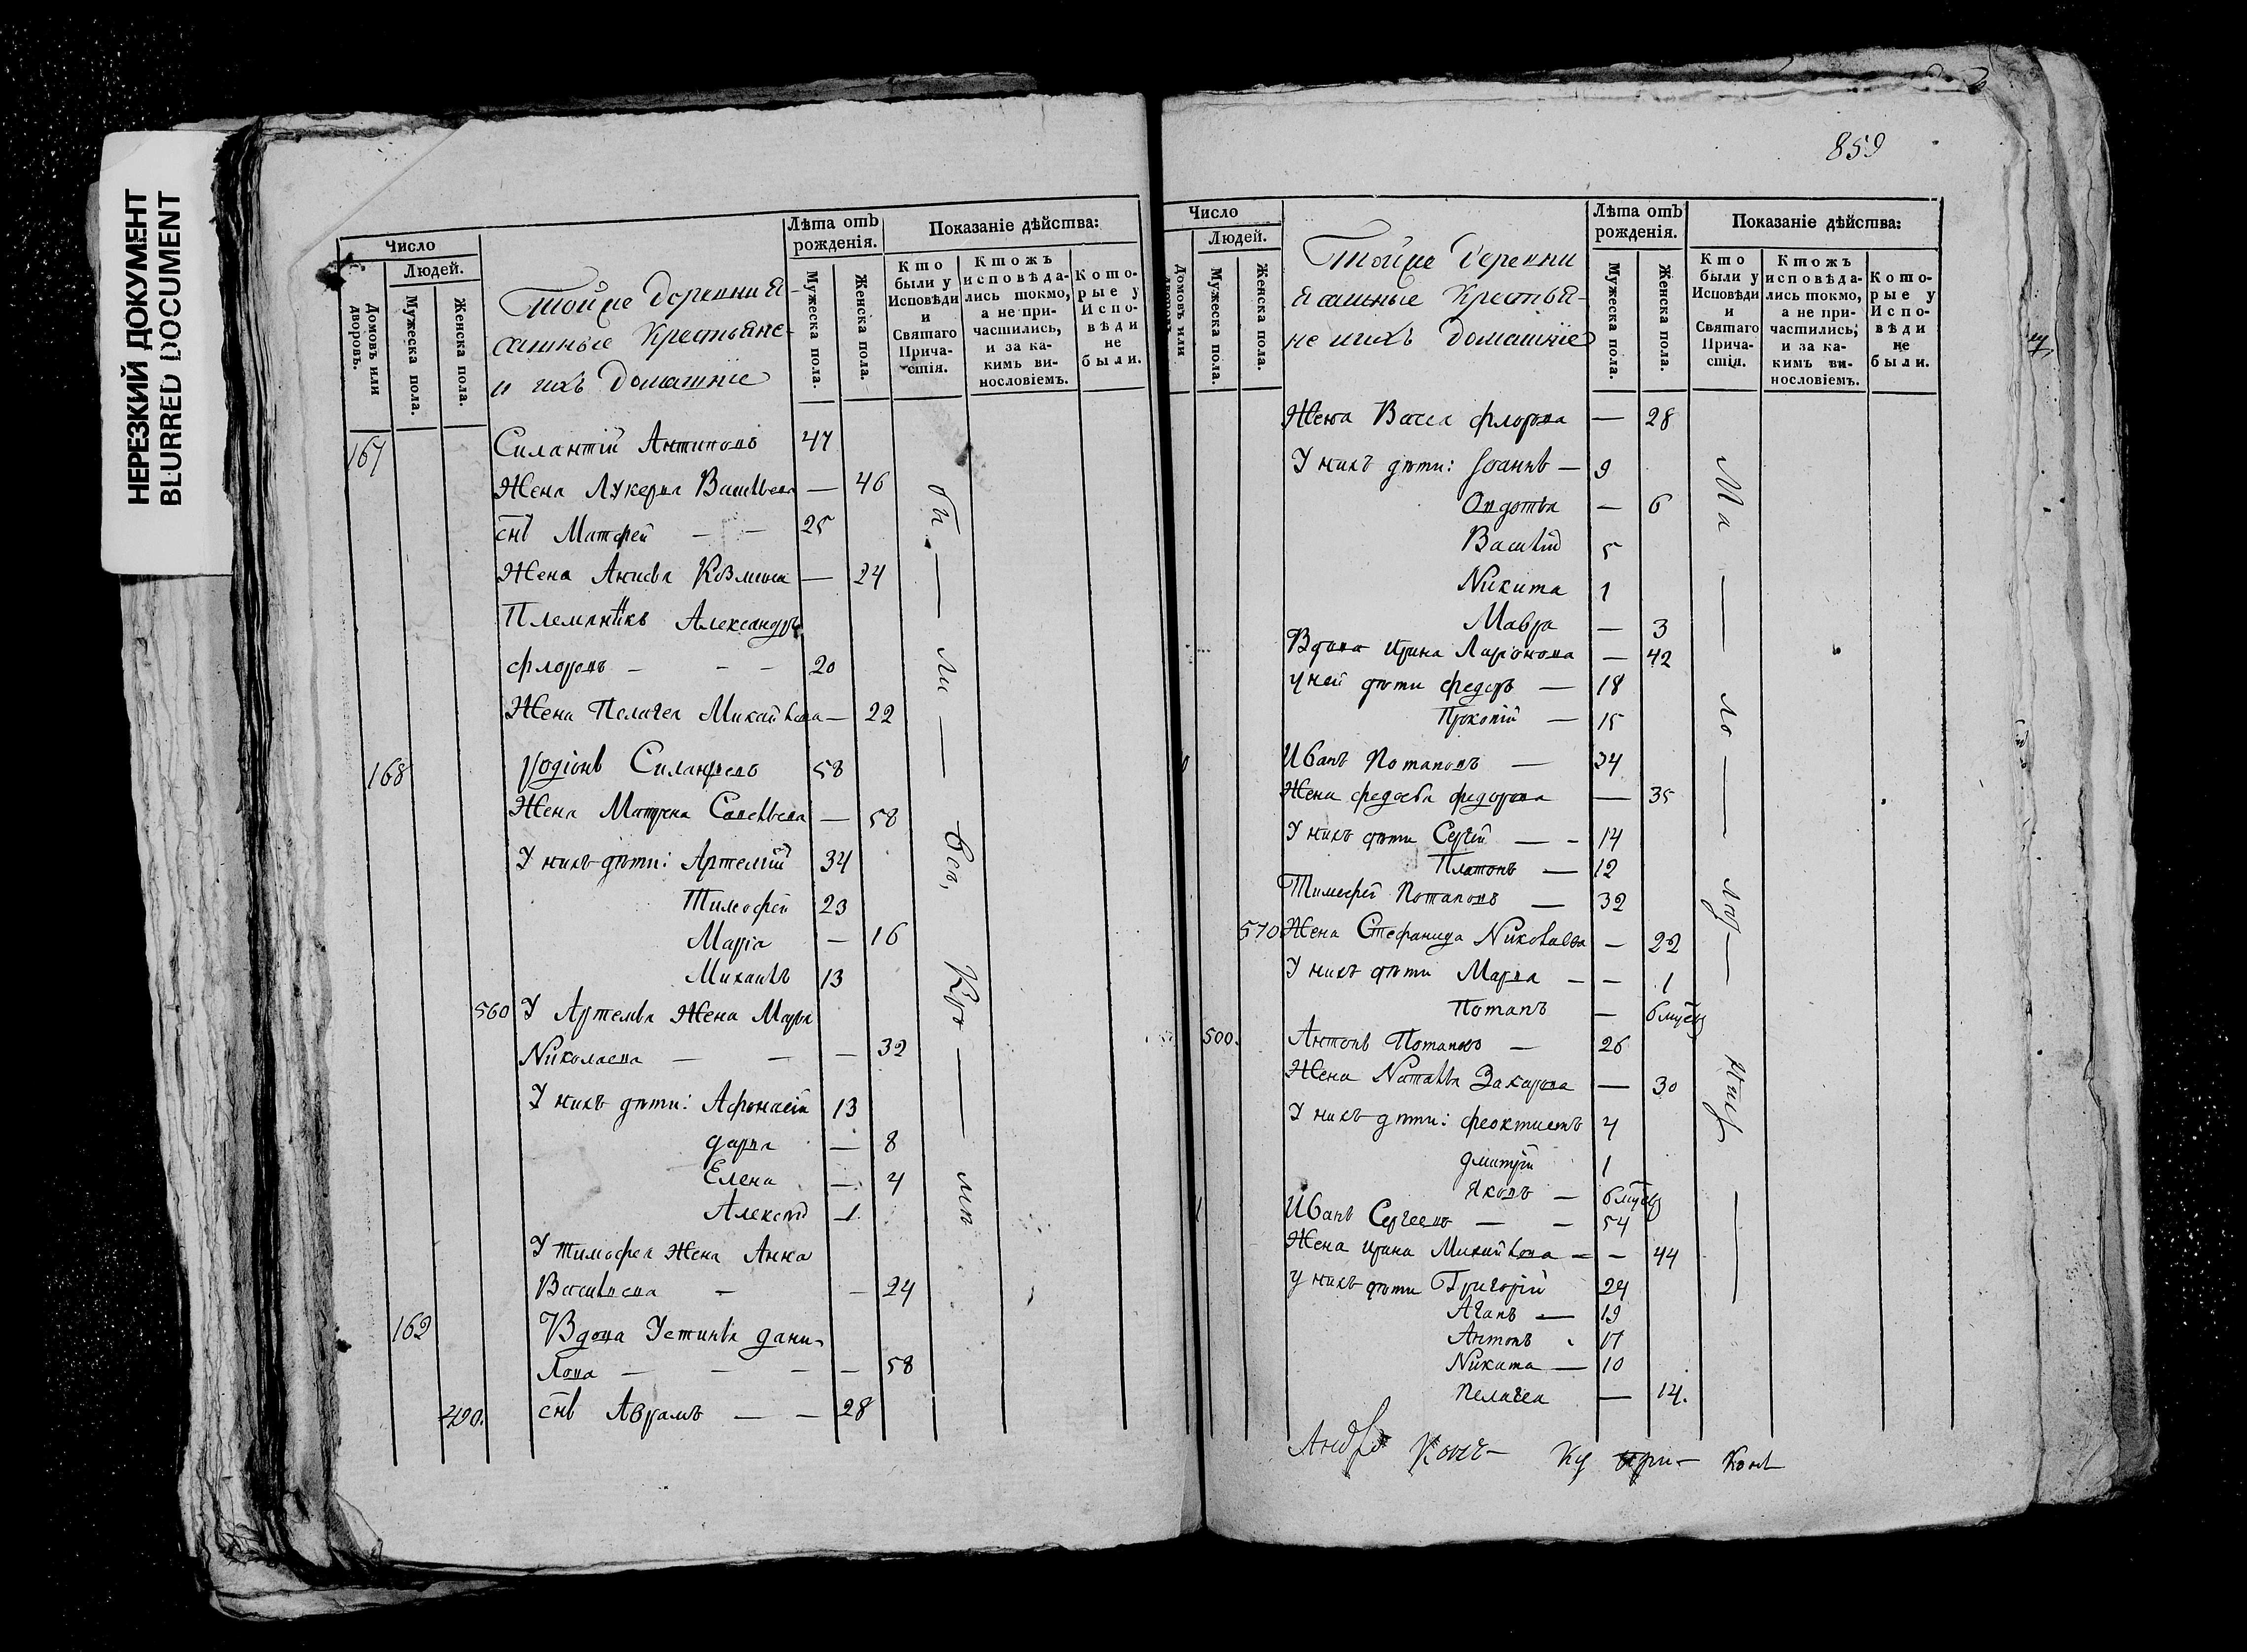 НЕРЕЗКИЙ ДОКУМЕНТ
BLURRED DOCUMENT
Число
Людей.
Домовъ или дворовъ.
Мужеска пола.
Женска пола.
Тойже деревни я-
сашные Крестьяне
и ихъ домашніе
Лѣта отъ рожденія.
Мужеска пола.
Женска пола.
Показаніе дѣйства:
Кто были у Исповѣди и Святаго Причастія.
Ктожъ исповѣдались токмо, а не причастились, и за какимъ винословіемъ.
Которые у Исповѣди не были.
167 Силантій Антиповъ 47
Жена Лукерья Васильева — 46
снъ Матфей — — 25
Жена Анисья Козмина — 24
Племянникъ Александръ
Флоровъ — — — 20
Жена Пелагея Михайлова — 22
168 Родіонъ Силантьевъ 58
Жена Матрена Савельева — 58
У нихъ дѣти: Артемій 34
Тимофей 23
Марія — 16
Михаилъ 13
560 У Артемья Жена Марья
Николаева — — — 32
У нихъ дѣти: Афонасій 13
Дарья — 8
Елена — 4
Алексѣй 1
У Тимофея Жена Анна
Васильева — — 24
169 Вдова Устинья Дани-
лова — — — — 58
490. снъ Аврамъ — — 28
бы — ли — всѣ, Кро — мѣ
859
Число
Людей.
Домовъ или дворовъ.
Мужеска пола.
Женска пола.
Тойже деревни
ясашные крестья-
не ихъ домашніе
Лѣта отъ рожденія.
Мужеска пола.
Женска пола.
Показаніе дѣйства:
Кто были у Исповѣди и Святаго Причастія.
Ктожъ исповѣдались токмо, а не причастились, и за какимъ винословіемъ.
Которые у Исповѣди не были.
Жена Васса Флорова — 28
У нихъ дѣти: Іоаннъ — 9
Овдотья — 6
Василій 5
Никита 1
Мавра — 3
Вдова Ирина Ларіонова — 42
У ней дѣти Федоръ — 18
Прокопій — 15
0 Иванъ Потаповъ — 34
Жена Федосья Федорова — 35
У нихъ дѣти Сергій — - 14
Платонъ — 12
Тимофей Потаповъ — 32
570 Жена Стефанида Николаева — 22
У нихъ дѣти Марья — — 1
Потапъ —
500. Антонъ Потаповъ — 26
Жена Наталья Захарова — 30
У нихъ дѣти: Феоктистъ 4
Дмитрій 1
Яковъ —
1 Иванъ Сергеевъ — — 54
Жена Ирина Михайлова — — 44
У нихъ дѣти Григорій 24
Агапъ — 19
Антонъ 17
Никита — 10
Пелагея — 14.
Ма — ло — лѣт —